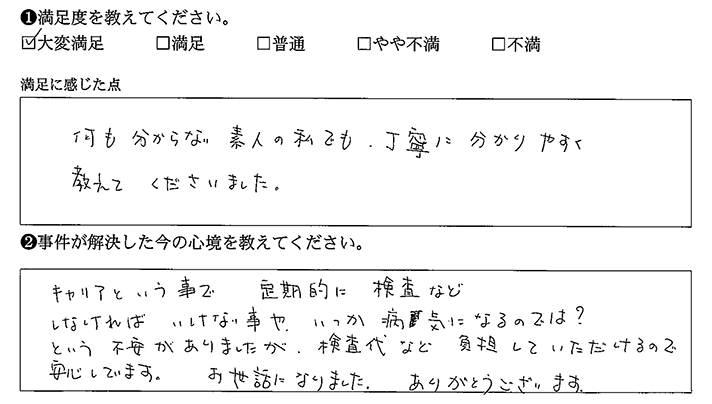 ❶満足度を教えてください。
☑大変満足 □満足 □普通 □やや不満 □不満
満足に感じた点
何も分からない素人の私でも、丁寧に分かりやすく
教えてくださいました。
❷事件が解決した今の心境を教えてください。
キャリアという事で 定期的に 検査など
しなければ いけない事や、いつか 病気になるのでは？
という 不安がありましたが、検査代など 負担していただけるので
安心しています。 お世話になりました。 ありがとうございます